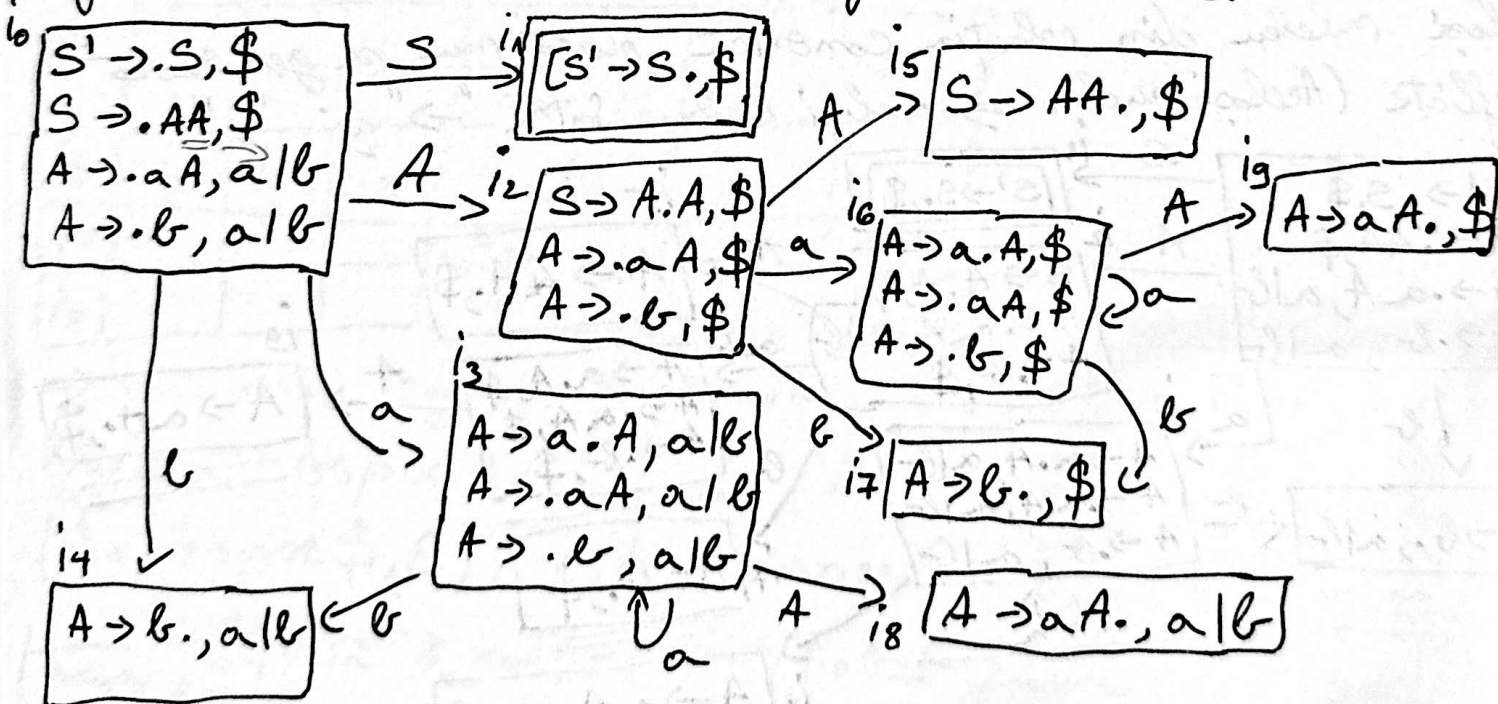 i0
S' → .S, $
S → .AA, $
A → .aA, a|b
A → .b, a|b
S
i1
[S' → S., $
A
i2
S → A.A, $
A → .aA, $
A → .b, $
A
i5
S → AA., $
a
i6
A → a.A, $
A → .aA, $
A → .b, $
a
A
i9
A → aA., $
b
b
i7
A → b., $
a
i3
A → a.A, a|b
A → .aA, a|b
A → .b, a|b
a
A
i8
A → aA., a|b
b
b
i4
A → b., a|b